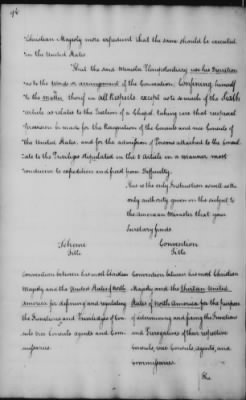 Christian Majesty more expedient that the same should be executed
in the United States.
That the said Minister Plenipotentiary use his Discretion
as to the Words or arrangement of the Convention; Confining himself
to the matter thereof in all Respects except as to so much of the
article as relates to the Erection of a Chapel, taking care that reciprocal
Provision is made for the Recognition of the Consuls and vice Consuls of
The United States, and for the admission of Persons attached to the Consul
ate to the Privileges stipulated in the 5 Article in a manner most
conducive to expedition and freest from Difficulty.
This is the only Instruction as well as the
only authority given on the subject to
the American Minister that your
Secretary finds
Scheme
Title
Convention between his most Christian
Majesty and the United States of North
America for defining and regulating
the Functions and Privileges of Con
suls vice Consuls agents and Com
missaries.
Convention
Title
Convention between his most Christian
Majesty and the thirteen United
States of North America for the purpose
of determining and fixing the Functions
and Prerogatives of their respective
Consuls, vice Consuls, agents, and
Commissaries.
The